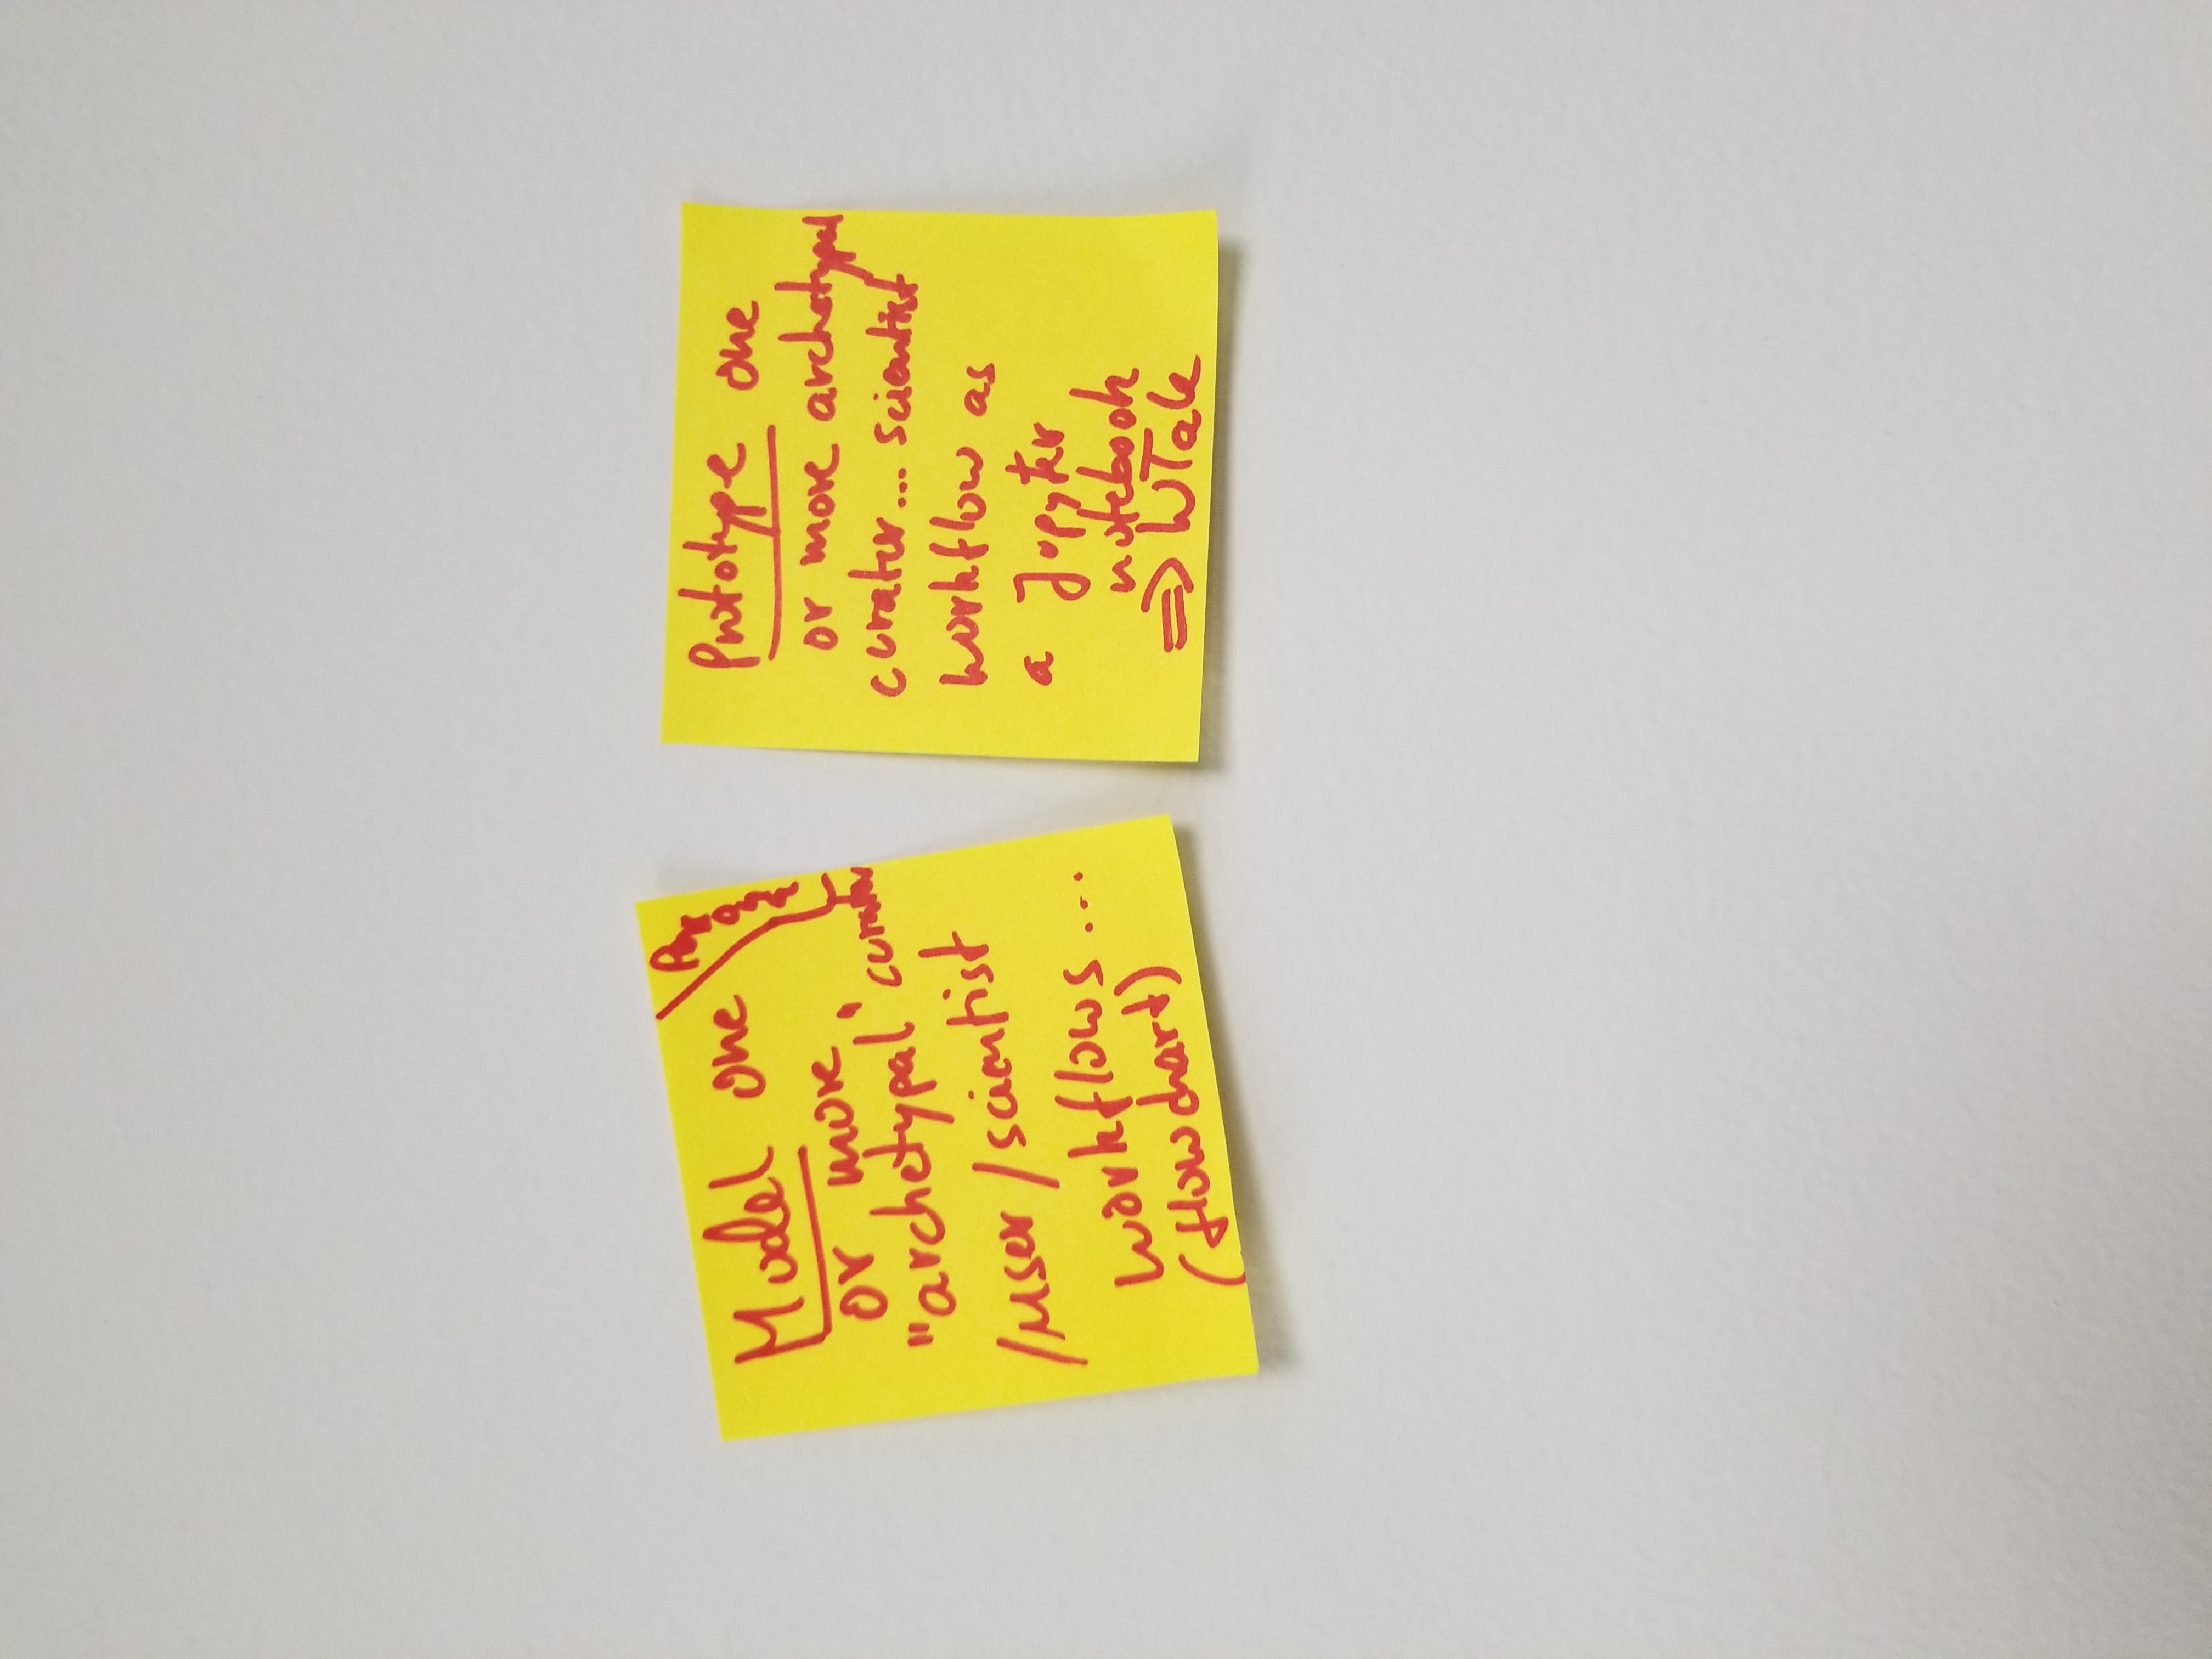 Model one
or more
"archetypal" curator
/user/scientist
workflows...
(flowchart)
Prototype one
or more archetypal
curator... scientist
workflow as
a Jupyter
notebook
=> WTale